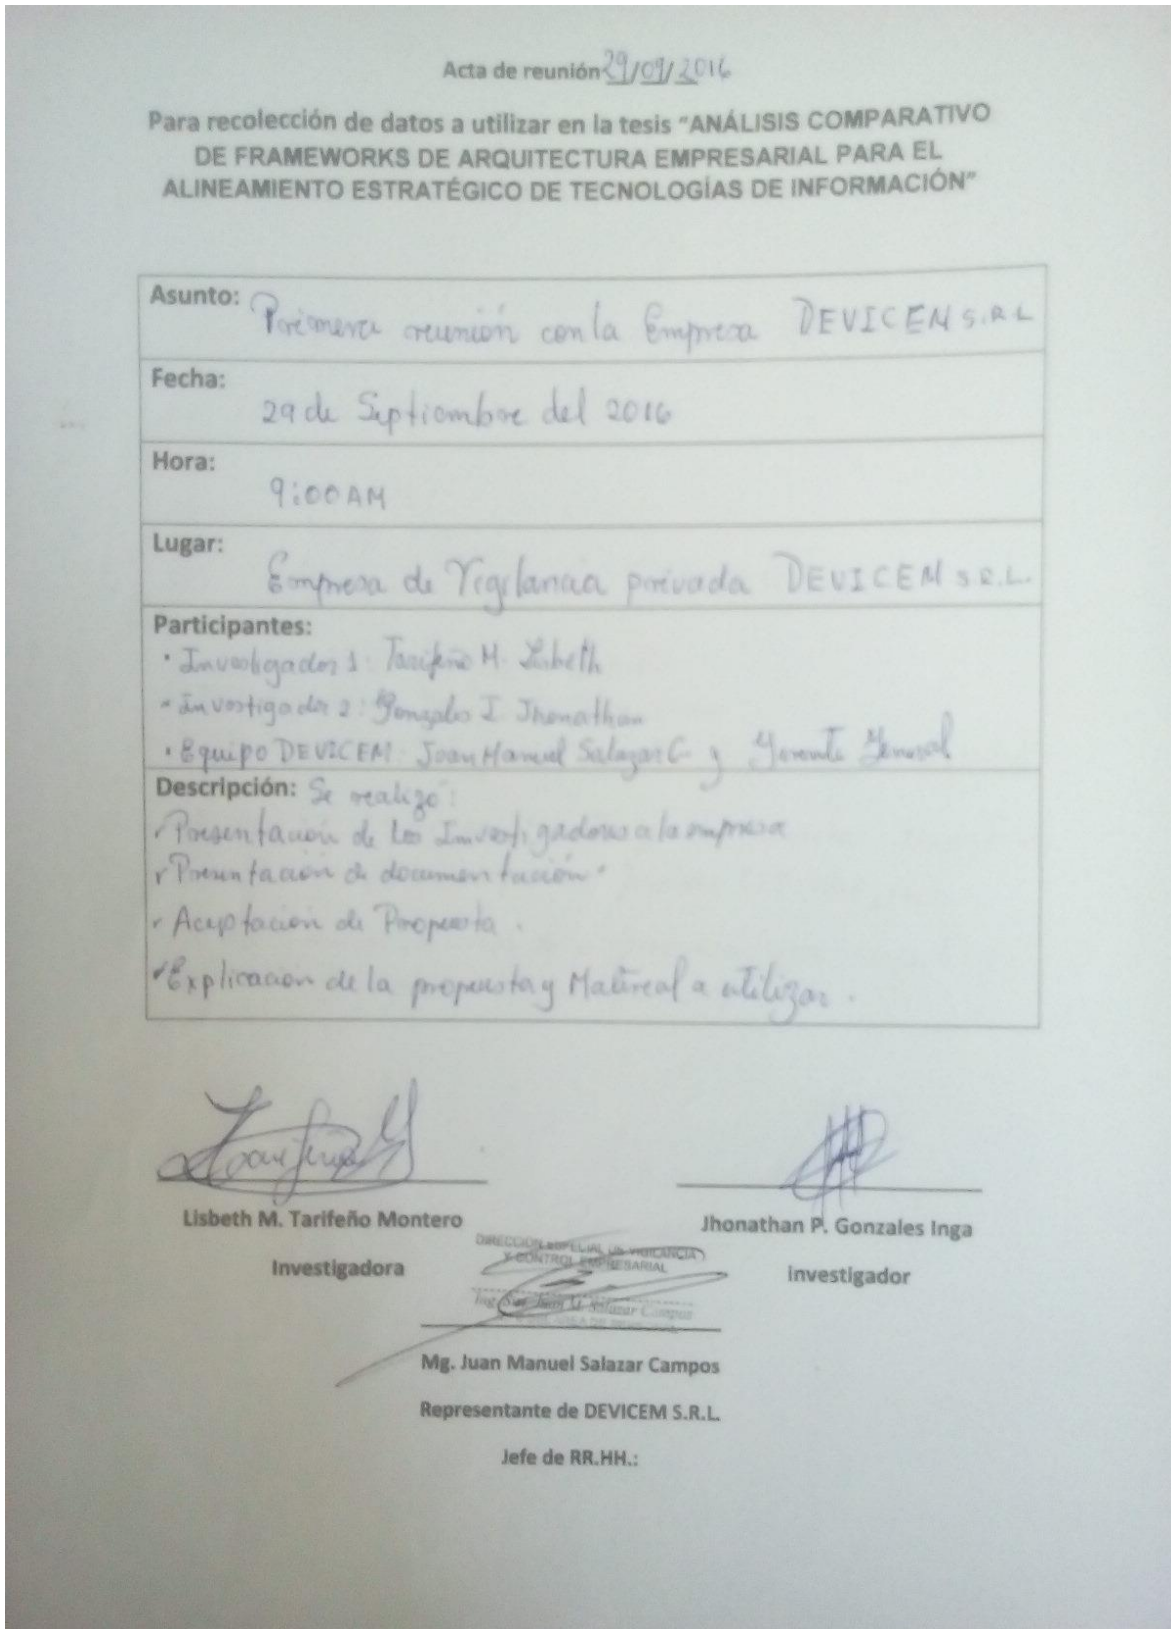 Acta de reunión 29/09/2016
Para recolección de datos a utilizar en la tesis "ANÁLISIS COMPARATIVO
DE FRAMEWORKS DE ARQUITECTURA EMPRESARIAL PARA EL
ALINEAMIENTO ESTRATÉGICO DE TECNOLOGÍAS DE INFORMACIÓN"
Asunto: Primera reunión con la Empresa DEVICEM S.R.L
Fecha:
29 de Septiembre del 2016
Hora:
9:00 AM
Lugar:
Empresa de Vigilancia privada DEVICEM S.R.L.
Participantes:
• Investigador 1: Tarifeño M. Lisbeth
• Investigador 2: Gonzales I Jhonathan
• Equipo DEVICEM: Juan Manuel Salazar C y Gerente General
Descripción: Se realizo:
✓ Presentación de los Investigadores a la empresa
✓ Presentación de documentación.
✓ Aceptación de Propuesta.
✓ Explicación de la propuesta y Matireal a utilizar.
Lisbeth M. Tarifeño Montero
Investigadora
Jhonathan P. Gonzales Inga
Investigador
DIRECCION ESPECIAL DE VIGILANCIA
Y CONTROL EMPRESARIAL
Ing. Juan M. Salazar Campos
Mg. Juan Manuel Salazar Campos
Representante de DEVICEM S.R.L.
Jefe de RR.HH.: